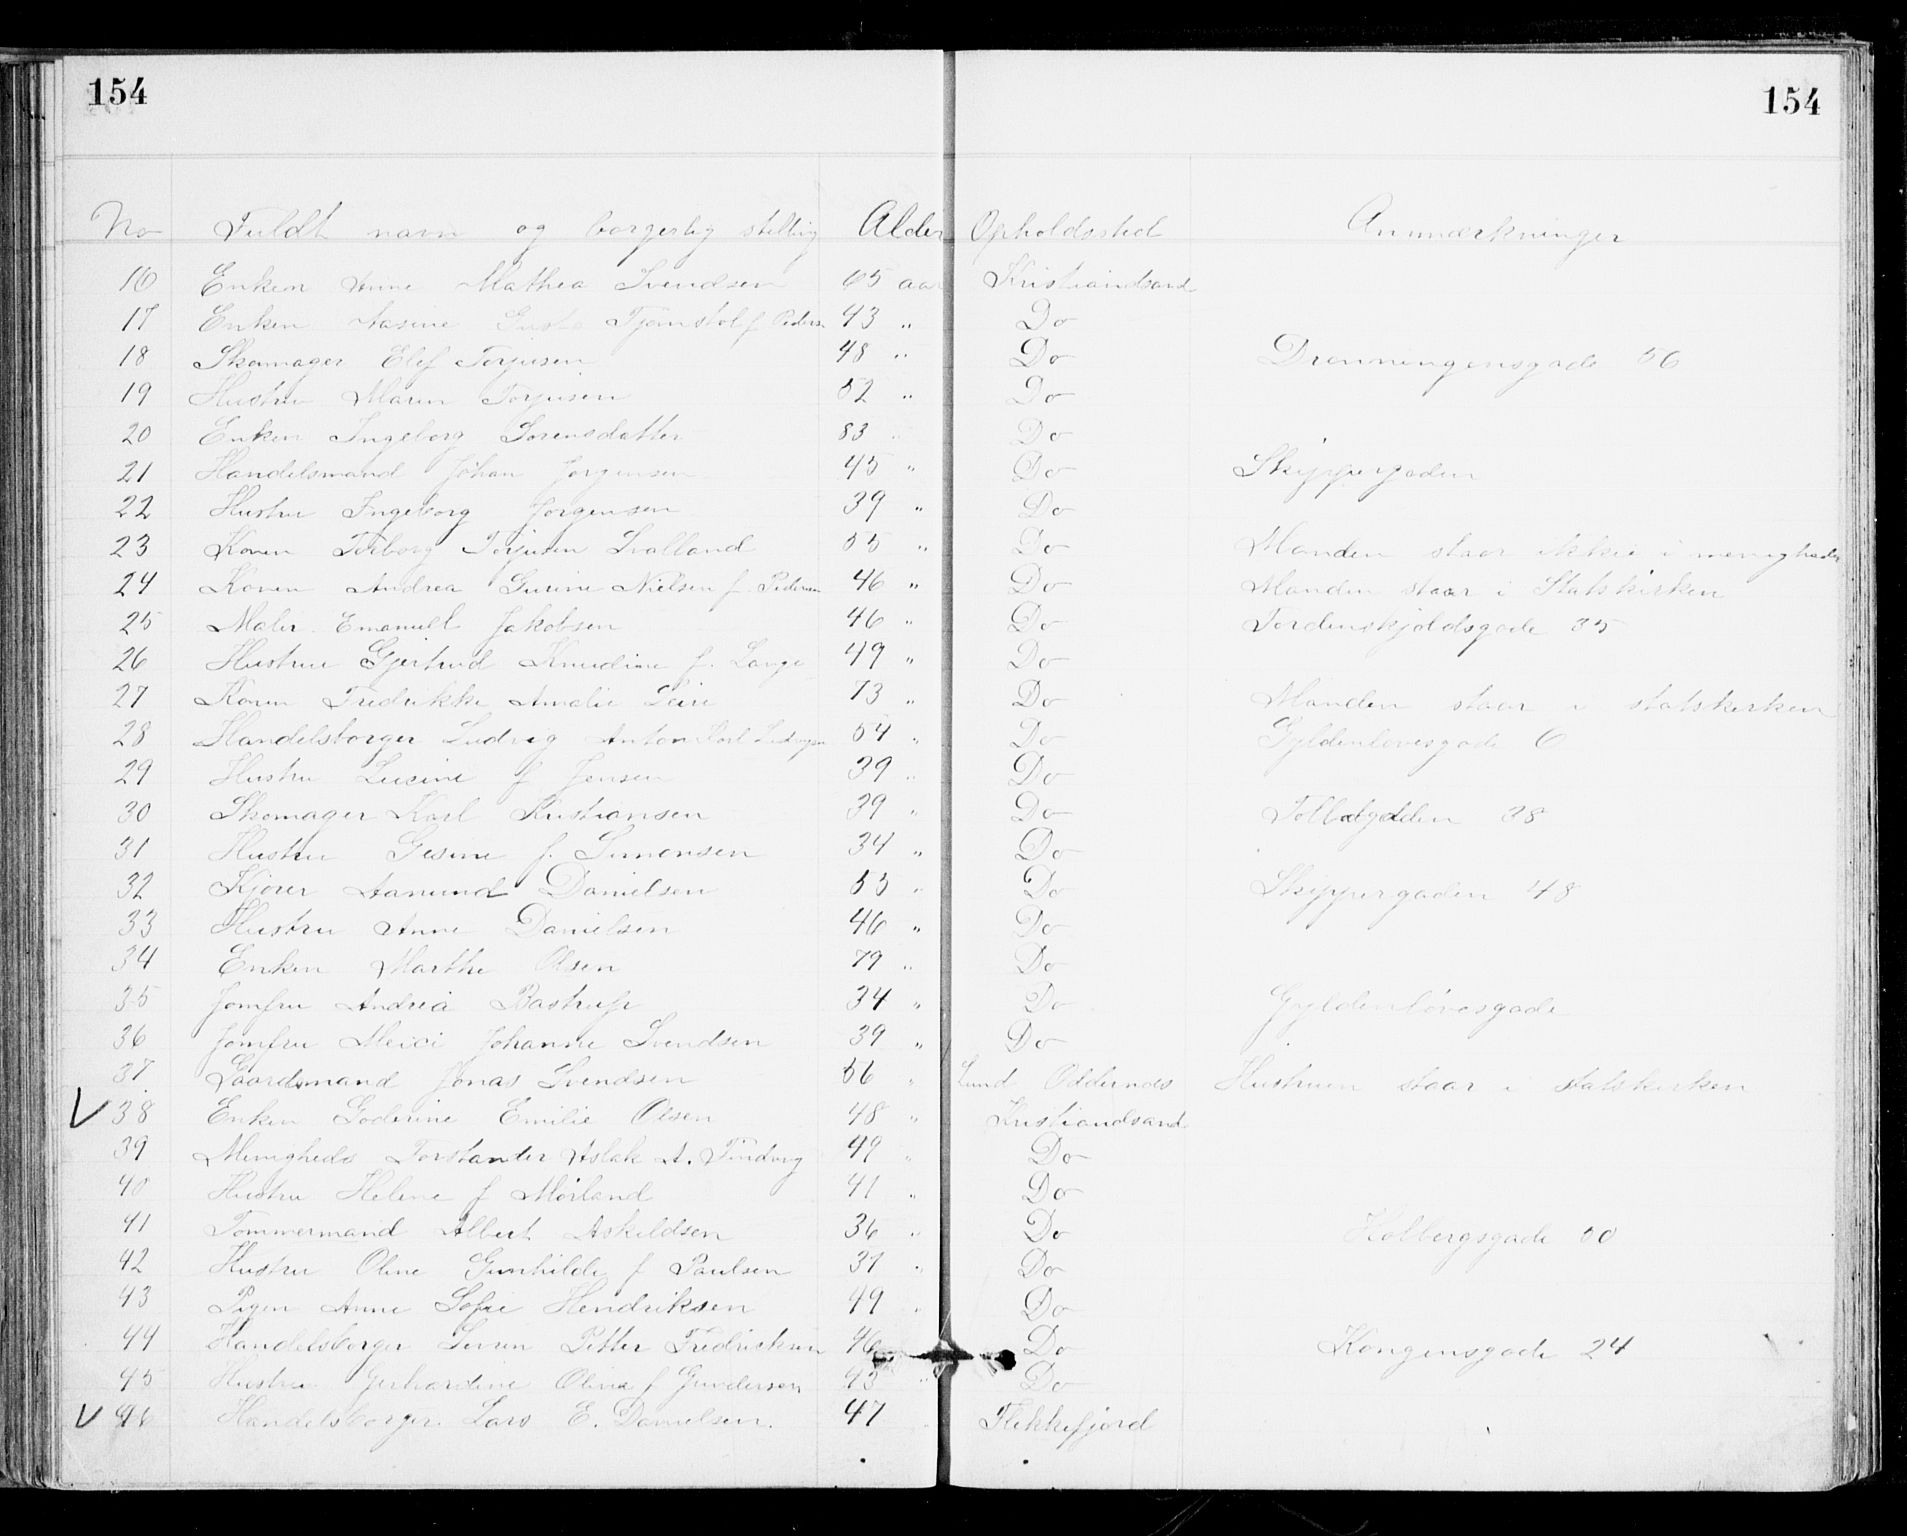 154 154
No Fuldt navn og borgerlig stilling Alder Opholdssted Anmærkninger
16 Enken Anne Mathea Svendsen 65 aar Kristiandsand
17 Enken Aasine Tjømstol f. Peders 43 " Do
18 Skomager Elef Torjusen 48 " Do Dronningensgade 56
19 Hustru Maren Torjusen 52 " Do
20 Enken Ingeborg Sorensdatter 83 " Do
21 Handelsmand Johan Jorgensen 45 " Do Skippergaden
22 Hustru Ingeborg Jorgensen 39 " Do
23 Konen Torborg Torjusen Svalland 55 " Do Manden staar ikkie i menigheden
24 Konen Andrea Gurine Nielsen f. Pedersen 46 " Do Manden staar i Statskirken
25 Maler Emanuel Jakobsen 46 " Do Tordenskjoldsgade 35
26 Hustru Gjertrud Knudine f. Lange 49 " Do
27 Konen Fredrikke Amalie 73 " Do Manden staar i statskirken
28 Handelsborger Ludvig Anton Karl Ludvigsen 54 " Do Gyldenlovesgade 6
29 Hustru Lusine f Jensen 39 " Do
30 Skomager Karl Kristiansen 39 " Do Tolbodgaden 38
31 Hustru Gesine f. Simonsen 34 " Do
32 Kjører Aanund Danielsen 55 " Do Skippergaden 48
33 Hustru Anne Danielsen 46 " Do
34 Enken Marthe Olsen 79 " Do
35 Jomfru Andrea Bastrup 34 " Do Gyldenløvesgade
36 Jomfru Johanne Svendsen 39 " Do
37 Gaardmand Jonas Svendsen 56 " Lund Oddernes Hustruen staar i statskirken
V 38 Enken Emilie Olsen 48 " Kristiandsand
39 Menigheds Forstander Aslak A. 49 " Do
40 Hustru Helene f Mørland 41 " Do
41 Tommermand Albert Askildsen 36 " Do Holbergsgade 50
42 Hustru Oline Gunhilde f Paulsen 37 " Do
43 Pigen Anne Sofie Hendriksen 49 " Do
44 Handelsborger Soren Petter Fredriksen 46 Do Kongensgade 24
45 Hustru Gerhardine Olina f Gundersen 45 " Do
V 46 Handelsborger Lars E. Danielsen. 47 " Flekkefjord